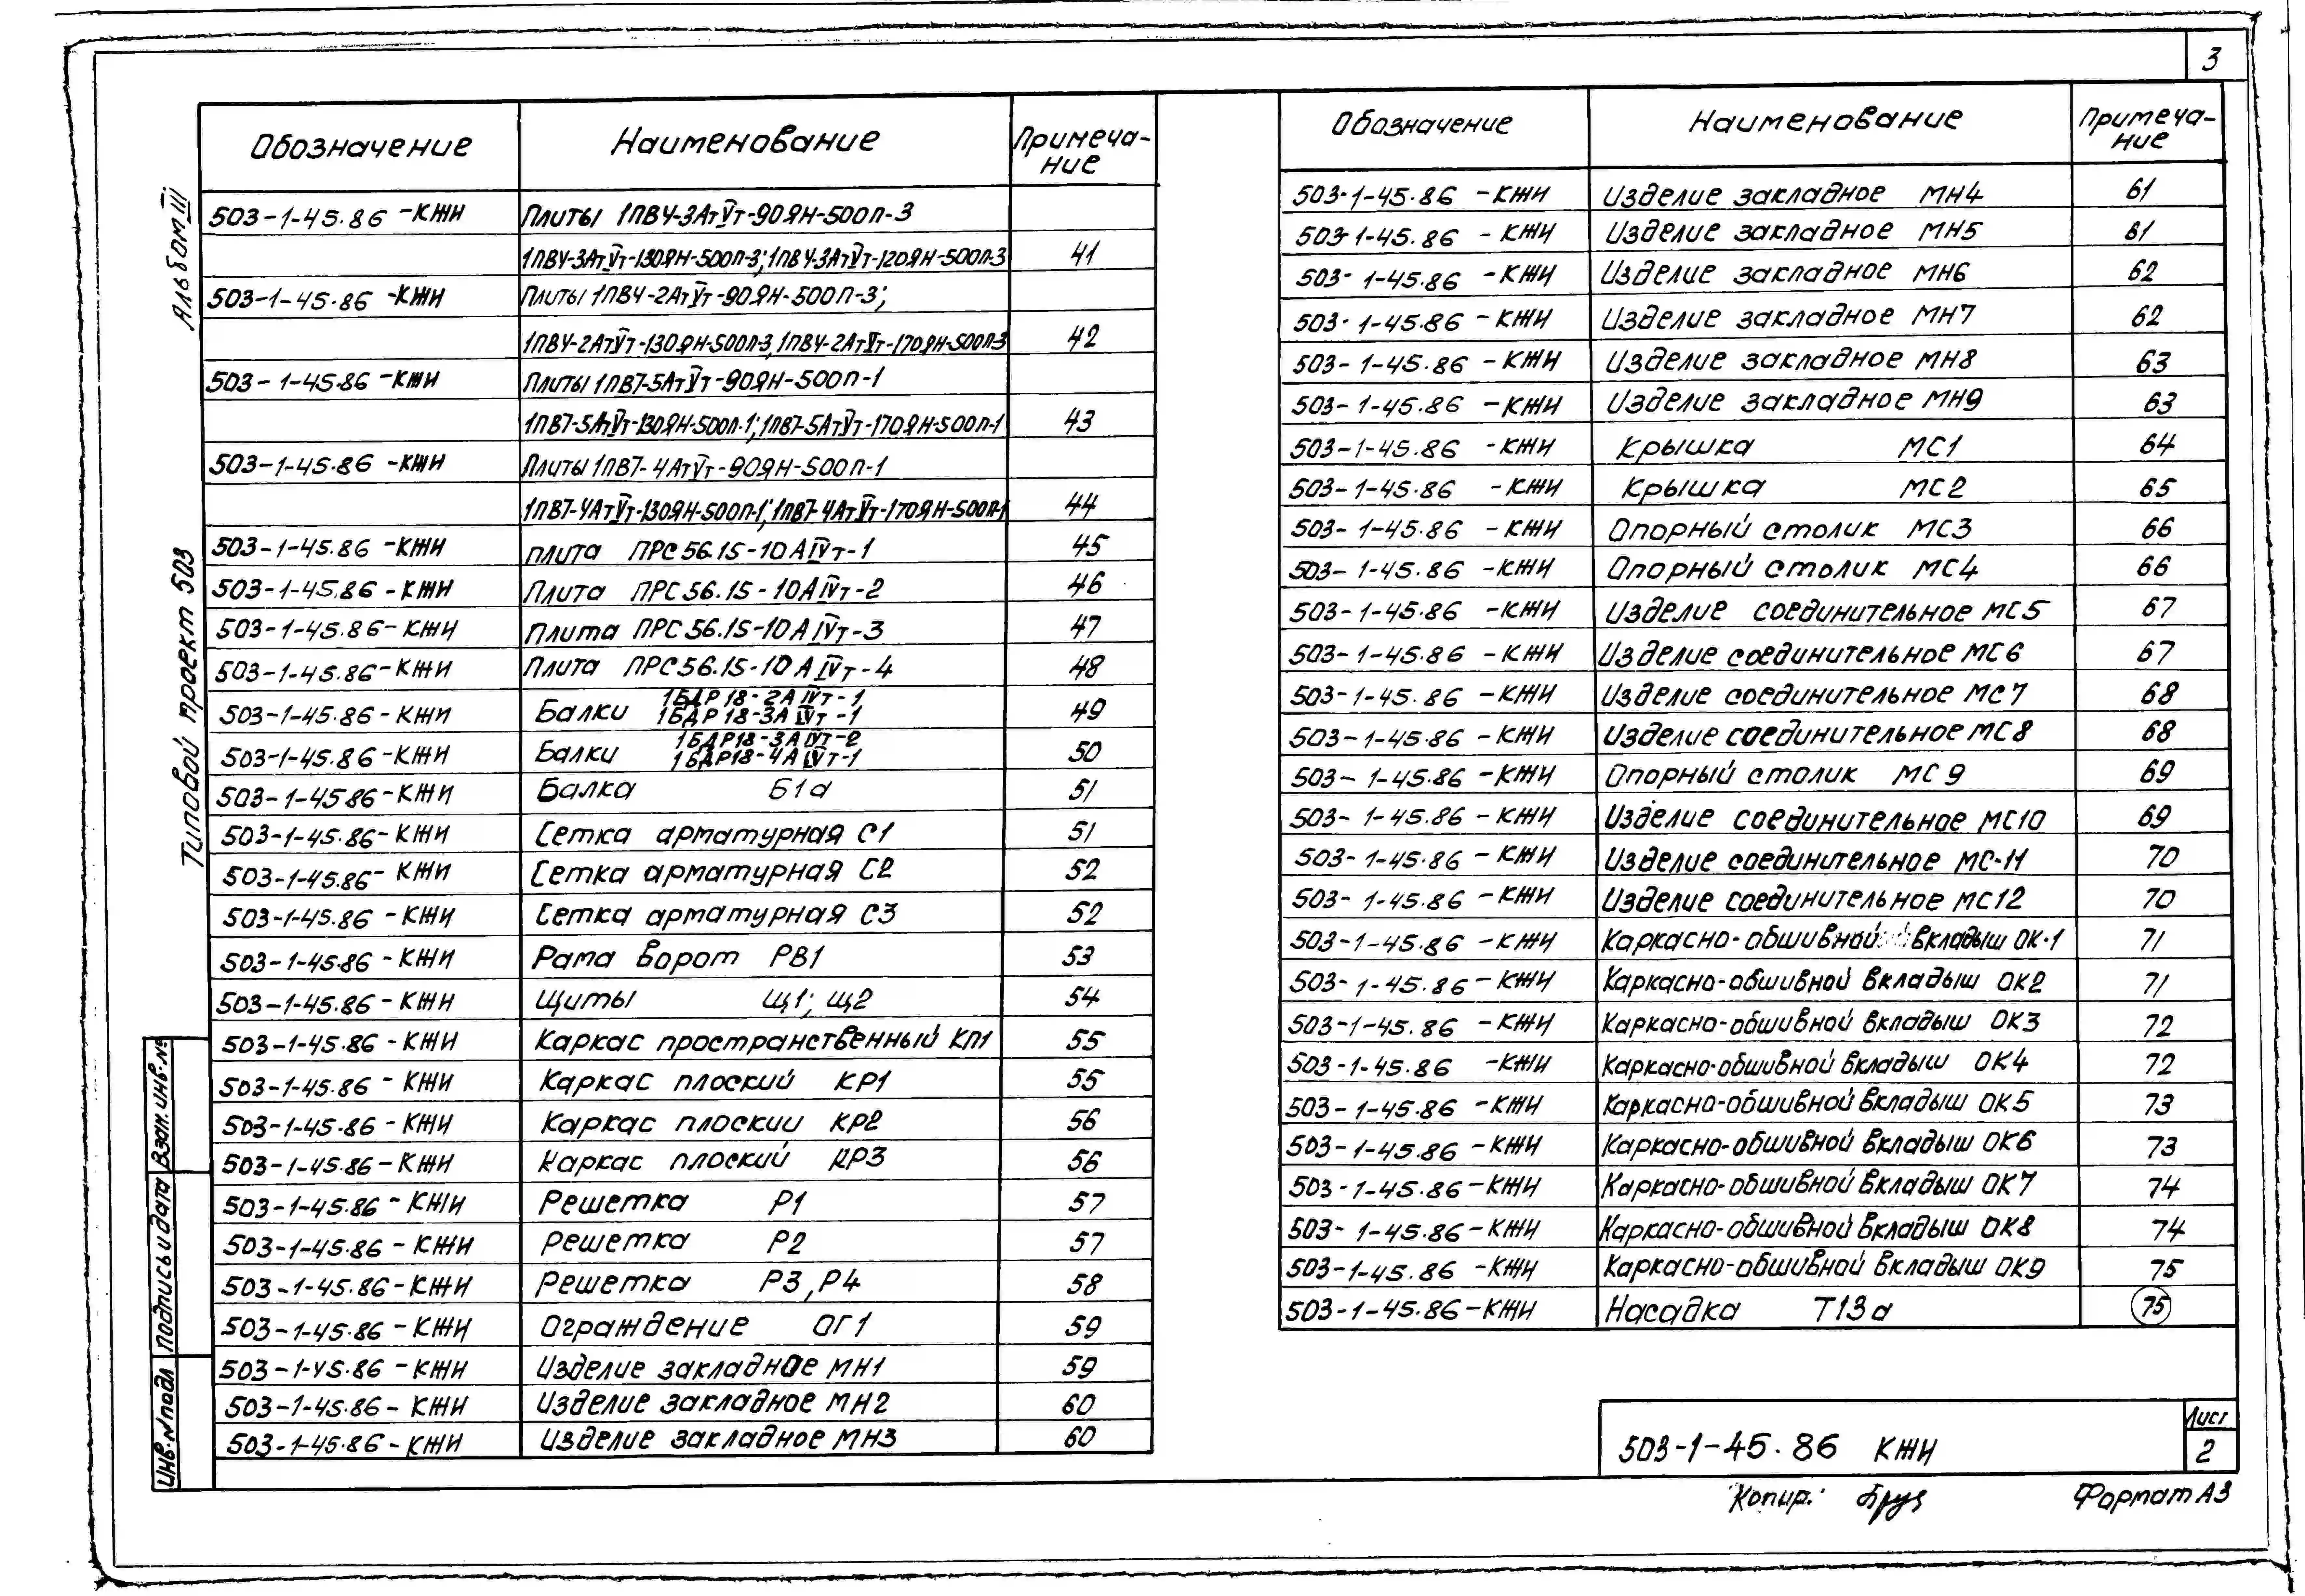 3
Альбом III
Типовой проект 503
Взам. инв. №
Подпись и дата
Инв. № подл
Обозначение Наименование Примеча-
ние
503-1-45.86 -КЖИ Плиты 1ПВУ-3АтⅣт-90ЯН-500П-3
1ПВУ-3АтⅣт-130ЯН-500П-3; 1ПВУ-3АтⅣт-120ЯН-500П-3 41
503-1-45.86 -КЖИ Плиты 1ПВУ-2АтⅣт-90ЯН-500П-3;
1ПВУ-2АтⅣт-130ЯН-500П-3, 1ПВУ-2АтⅣт-170ЯН-500П-3 42
503-1-45-86 -КЖИ Плиты 1ПВ7-5АтⅣт-90ЯН-500П-1
1ПВ7-5АтⅣт-130ЯН-500П-1; 1ПВ7-5АтⅣт-170ЯН-500П-1 43
503-1-45.86 -КЖИ Плиты 1ПВ7-4АтⅣт-90ЯН-500П-1
1ПВ7-4АтⅣт-130ЯН-500П-1; 1ПВ7-4АтⅣт-170ЯН-500П-1 44
503-1-45.86 -КЖИ плита ПРС56.15-10АⅣт-1 45
503-1-45.86 -КЖИ Плита ПРС56.15-10АⅣт-2 46
503-1-45.86-КЖИ Плита ПРС56.15-10АⅣт-3 47
503-1-45.86-КЖИ Плита ПРС56.15-10АⅣт-4 48
503-1-45.86-КЖИ Балки 1БДР18-2АⅣт-1
1БДР18-3АⅣт-1 49
503-1-45.86-КЖИ Балки 1БДР18-3АⅣт-2
1БДР18-4АⅣт-1 50
503-1-4586-КЖИ Балка Б1а 51
503-1-45.86-КЖИ Сетка арматурная С1 51
503-1-45.86-КЖИ Сетка арматурная С2 52
503-1-45.86 -КЖИ Сетка арматурная С3 52
503-1-45.86 -КЖИ Рама ворот РВ1 53
503-1-45.86-КЖИ Щиты Щ1; Щ2 54
503-1-45.86 -КЖИ Каркас пространственный КП1 55
503-1-45.86 -КЖИ Каркас плоский КР1 55
503-1-45.86 -КЖИ Каркас плоский КР2 56
503-1-45.86-КЖИ Каркас плоский КР3 56
503-1-45.86 -КЖИ Решетка Р1 57
503-1-45.86 -КЖИ Решетка Р2 57
503-1-45.86-КЖИ Решетка Р3, Р4 58
503-1-45.86 -КЖИ Ограждение ОГ1 59
503-1-45.86 -КЖИ Изделие закладное МН1 59
503-1-45.86- КЖИ Изделие закладное МН2 60
503-1-45.86-КЖИ Изделие закладное МН3 60
Обозначение Наименование Примеча-
ние
503-1-45.86 -КЖИ Изделие закладное МН4 61
503-1-45.86 -КЖИ Изделие закладное МН5 61
503-1-45.86 -КЖИ Изделие закладное МН6 62
503-1-45.86 -КЖИ Изделие закладное МН7 62
503-1-45.86 -КЖИ Изделие закладное МН8 63
503-1-45.86 -КЖИ Изделие закладное МН9 63
503-1-45.86 -КЖИ Крышка МС1 64
503-1-45.86 -КЖИ Крышка МС2 65
503-1-45.86 -КЖИ Опорный столик МС3 66
503-1-45.86 -КЖИ Опорный столик МС4 66
503-1-45.86 -КЖИ Изделие соединительное МС5 67
503-1-45.86 -КЖИ Изделие соединительное МС6 67
503-1-45.86 -КЖИ Изделие соединительное МС7 68
503-1-45.86 -КЖИ Изделие соединительное МС8 68
503-1-45.86 -КЖИ Опорный столик МС9 69
503-1-45.86 -КЖИ Изделие соединительное МС10 69
503-1-45.86 -КЖИ Изделие соединительное МС-11 70
503-1-45.86 -КЖИ Изделие соединительное МС12 70
503-1-45.86 -КЖИ Каркасно-обшивной вкладыш ОК-1 71
503-1-45.86 -КЖИ Каркасно-обшивной вкладыш ОК2 71
503-1-45.86 -КЖИ Каркасно-обшивной вкладыш ОК3 72
503-1-45.86 -КЖИ Каркасно-обшивной вкладыш ОК4 72
503-1-45.86 -КЖИ Каркасно-обшивной вкладыш ОК5 73
503-1-45.86 -КЖИ Каркасно-обшивной вкладыш ОК6 73
503-1-45.86-КЖИ Каркасно-обшивной вкладыш ОК7 74
503-1-45.86-КЖИ Каркасно-обшивной вкладыш ОК8 74
503-1-45.86 -КЖИ Каркасно-обшивной вкладыш ОК9 75
503-1-45.86-КЖИ Насадка Т13а 75
503-1-45.86 КЖИ
Лист
2
Копир.
Формат А3